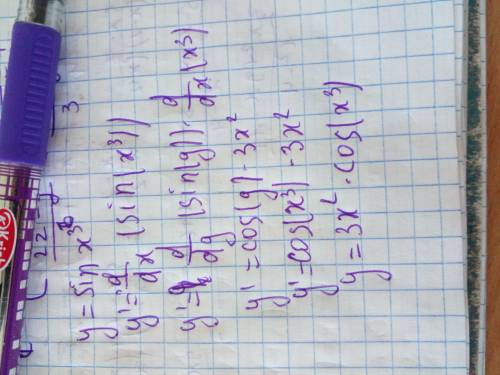 22
3
y = sin x³
y' = d/dx (sin(x³))
y' = d/dg (sin(g)) · d/dx (x³)
y' = cos(g) · 3x²
y' = cos(x³) · 3x²
y = 3x² · cos(x³)